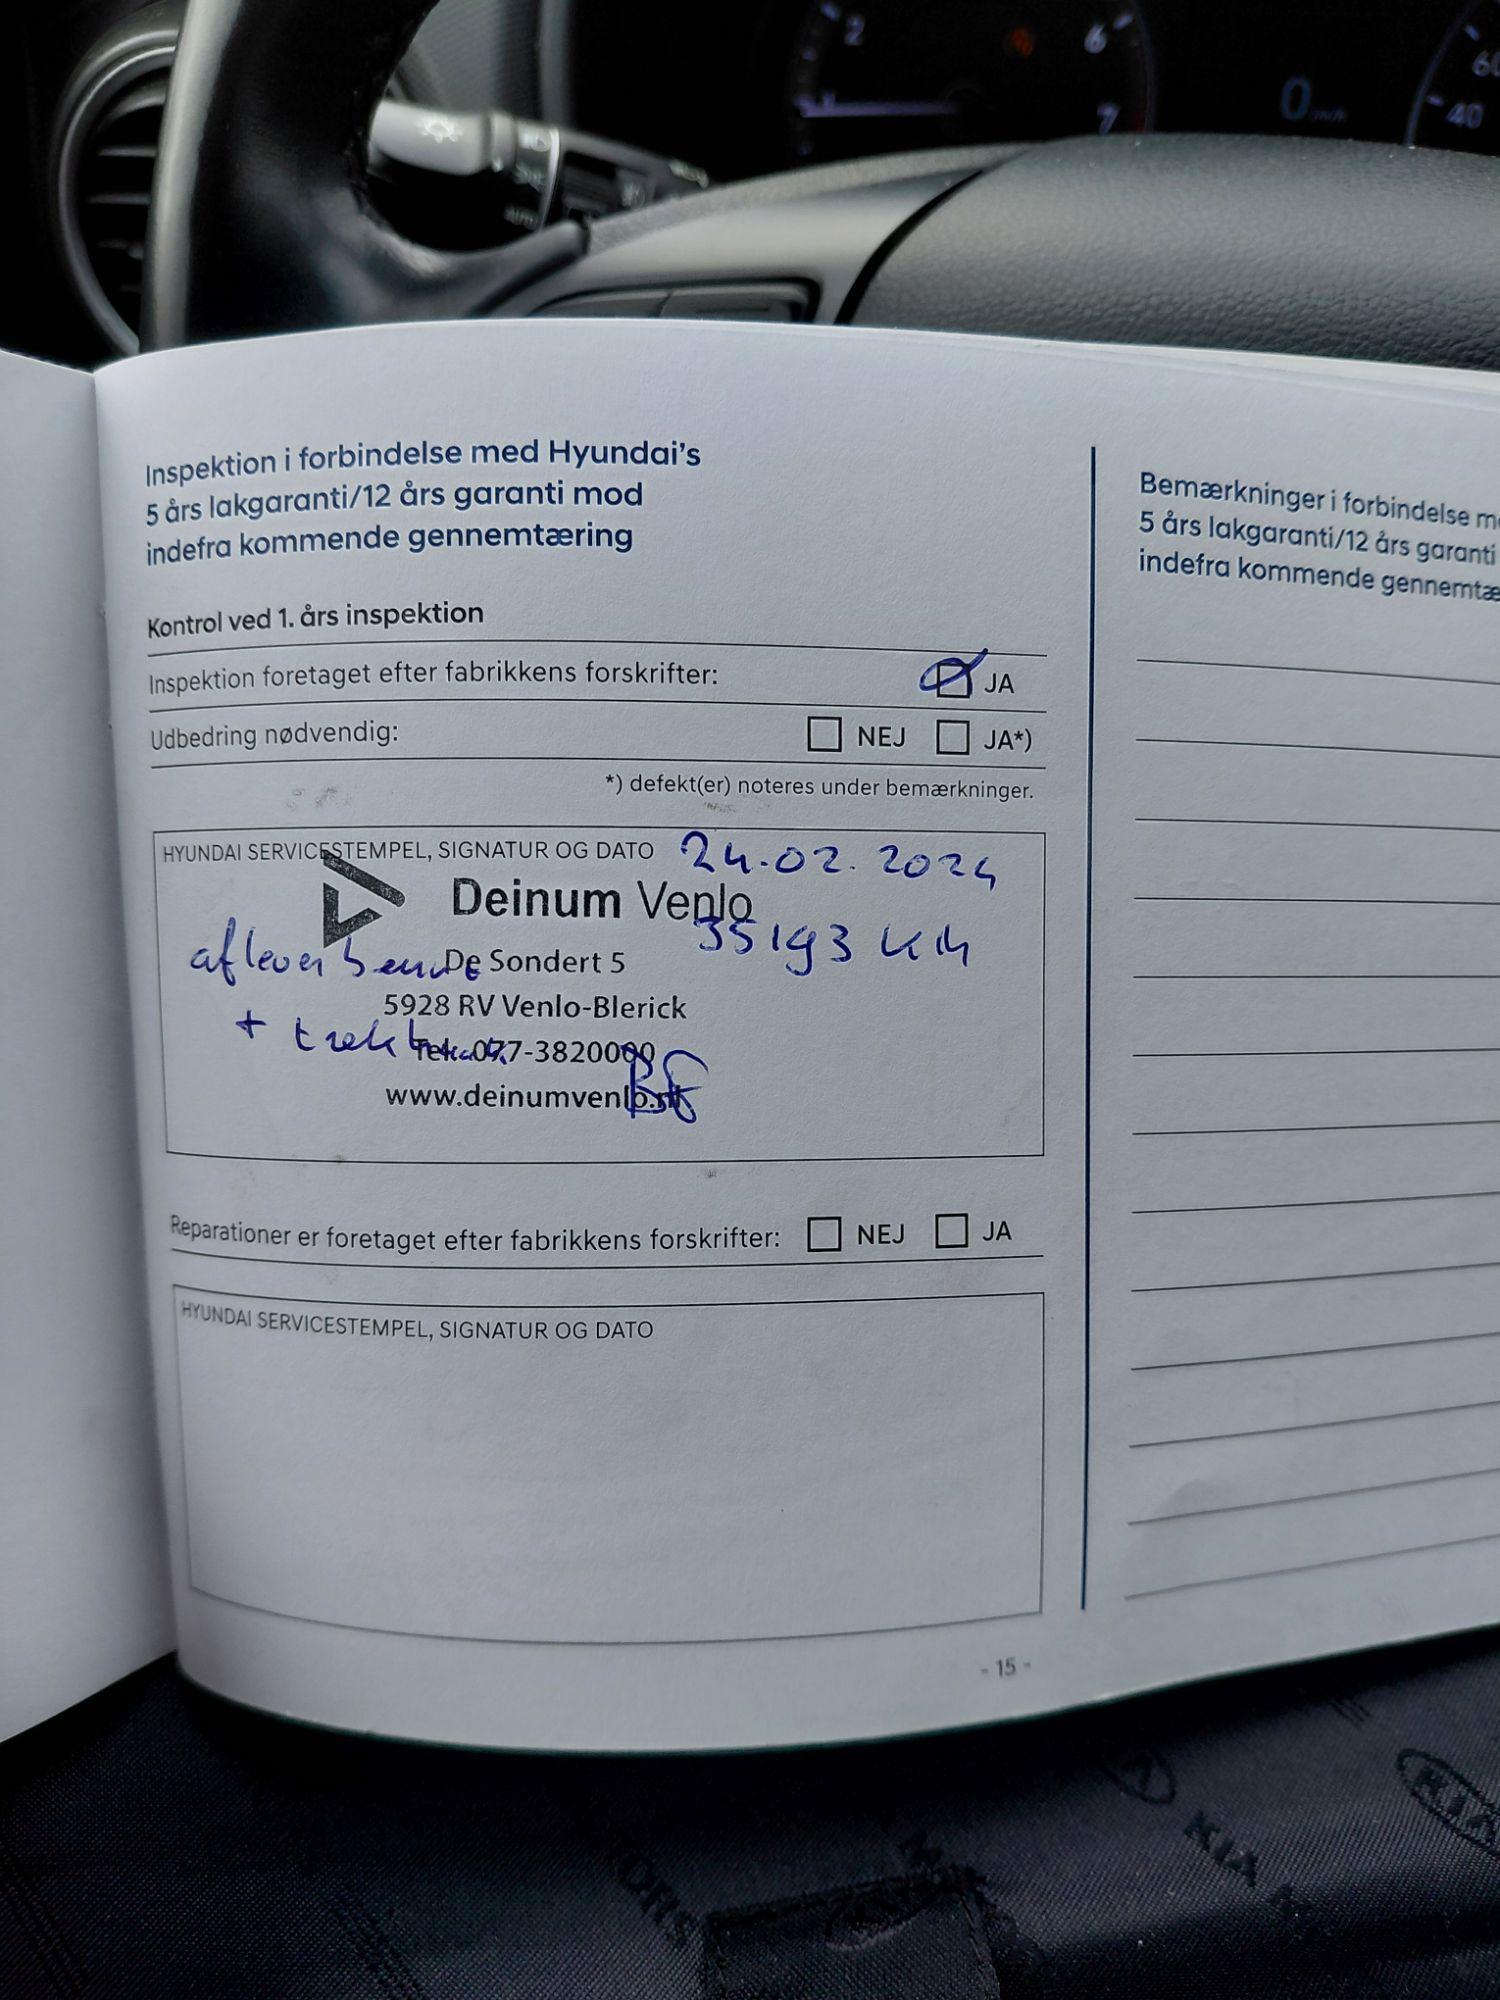 2
6
7
0
60
40
Inspektion i forbindelse med Hyundai's
5 års lakgaranti/12 års garanti mod
indefra kommende gennemtæring
Kontrol ved 1. års inspektion
Inspektion foretaget efter fabrikkens forskrifter: JA
Udbedring nødvendig: NEJ JA*)
*) defekt(er) noteres under bemærkninger.
HYUNDAI SERVICESTEMPEL, SIGNATUR OG DATO 24-02-2024
Deinum Venlo
35193 KM
De Sondert 5
5928 RV Venlo-Blerick
+
Tel. 077-3820000
www.deinumvenlo.nl
Reparationer er foretaget efter fabrikkens forskrifter: NEJ JA
HYUNDAI SERVICESTEMPEL, SIGNATUR OG DATO
- 15 -
Bemærkninger i forbindelse
5 års lakgaranti/12 års garanti
indefra kommende
KIA